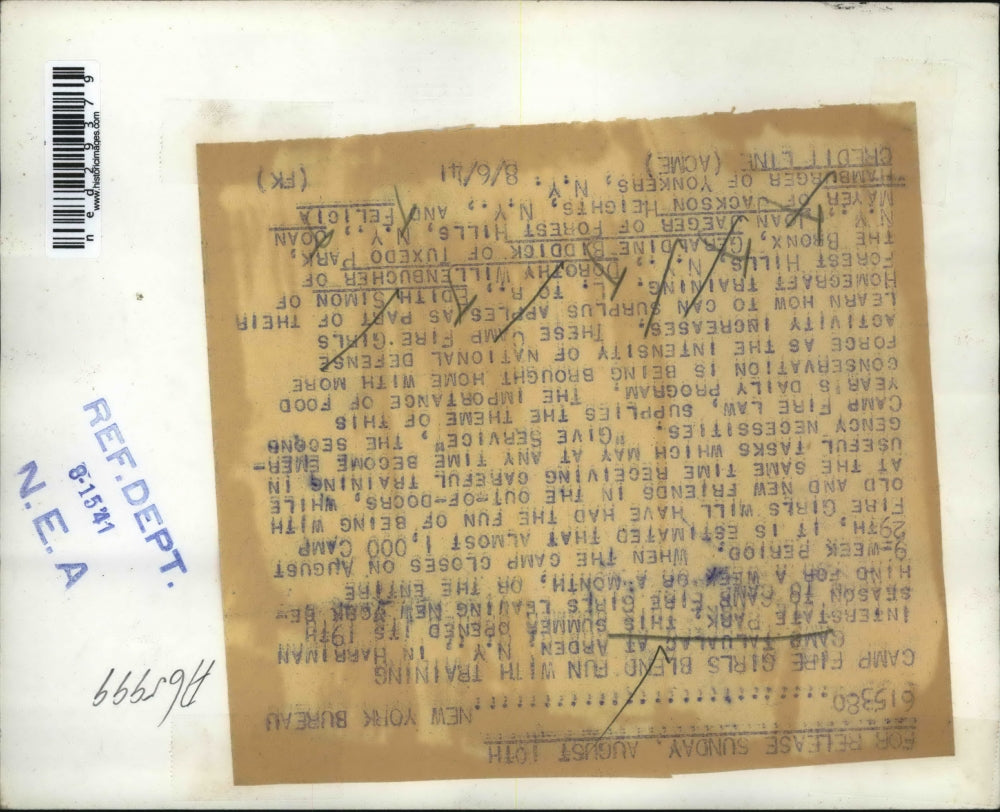 FOR RELEASE SUNDAY, AUGUST 10TH
615380 NEW YORK BUREAU
CAMP FIRE GIRLS BLEND FUN WITH TRAINING
CAMP TALUALAC AT ARDEN, N.Y. IN HARRIMAN
INTERSTATE PARK, THIS SUMMER OPENED ITS 19TH
SEASON TO CAMP FIRE GIRLS LEAVING NEW YORK BE-
HIND FOR A WEEK OR A MONTH, OR THE ENTIRE
9-WEEK PERIOD. WHEN THE CAMP CLOSES ON AUGUST
29TH, IT IS ESTIMATED THAT ALMOST 1,000 CAMP
FIRE GIRLS WILL HAVE HAD THE FUN OF BEING WITH
OLD AND NEW FRIENDS IN THE OUT-OF-DOORS, WHILE
AT THE SAME TIME RECEIVING CAREFUL TRAINING IN
USEFUL TASKS WHICH MAY AT ANY TIME BECOME EMER-
GENCY NECESSITIES. "GIVE SERVICE", THE SECOND
CAMP FIRE LAW, SUPPLIES THE THEME OF THIS
YEAR'S DAILY PROGRAM. THE IMPORTANCE OF FOOD
CONSERVATION IS BEING BROUGHT HOME WITH MORE
FORCE AS THE INTENSITY OF NATIONAL DEFENSE
ACTIVITY INCREASES. THESE CAMP FIRE GIRLS
LEARN HOW TO CAN SURPLUS APPLES AS PART OF THEIR
HOMECRAFT TRAINING. L. TO R., EDITH SIMON OF
FOREST HILLS, N.Y., DOROTHY WILLENBUCHER OF
THE BRONX, GERALDINE BIDDICK OF TUXEDO PARK,
N.Y., JEAN JAEGER OF FOREST HILLS, N.Y., JOAN
MAYER OF JACKSON HEIGHTS, N.Y., AND FELICIA
HAMBURGER OF YONKERS, N.Y.
CREDIT LINE (ACME) 8/6/41 (FK)
REF. DEPT.
8-15-41
N.E.A
A65999
ned29379
www.historicimages.com